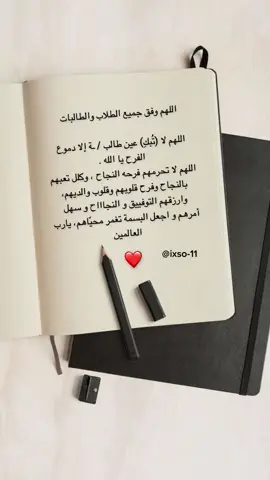 اللهم وفق جميع الطلاب والطالبات
اللهم لا (تُبكِ) عين طالب / ـة إلا دموع
الفرح يا الله .
اللهم لا تحرمهم فرحه النجاح ، وكلل تعبهم
بالنجاح وفرح قلوبهم وقلوب والديهم،
وارزقهم التوفييق و النجاااح و سهل
أمرهم و اجعل البسمة تغمر محيّاهم، يارب
العالمين
@ixso-11